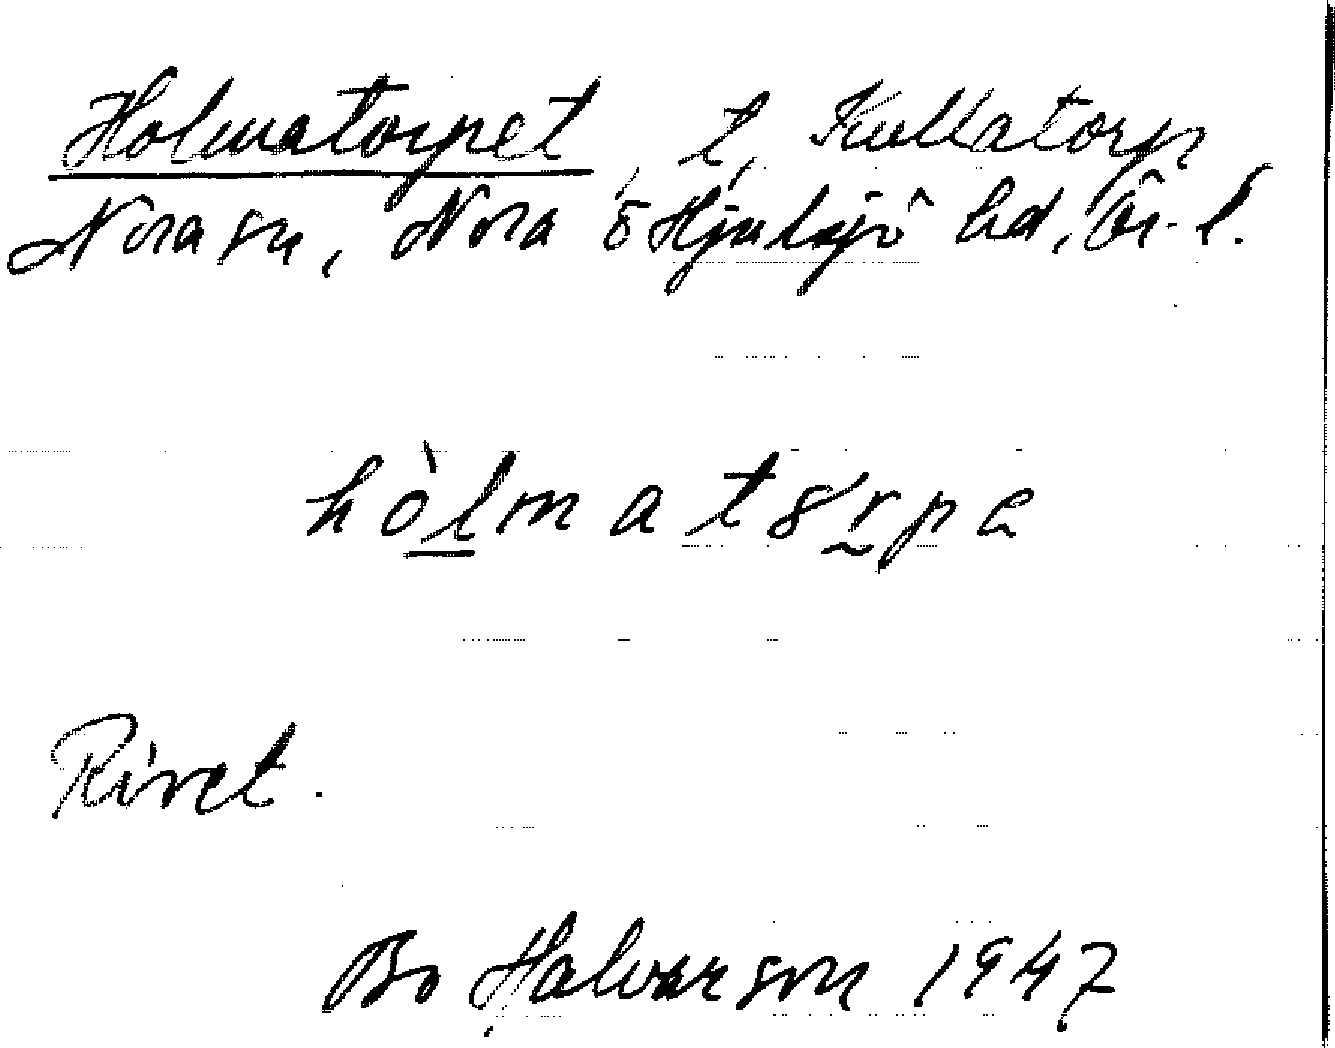 Holmatorpet, t, Kullatorp
Nora sn, Nora o Hjulsjö hd, Ör. l.
hòlmat8rpe
Rivet.
Bo Halvarson 1947